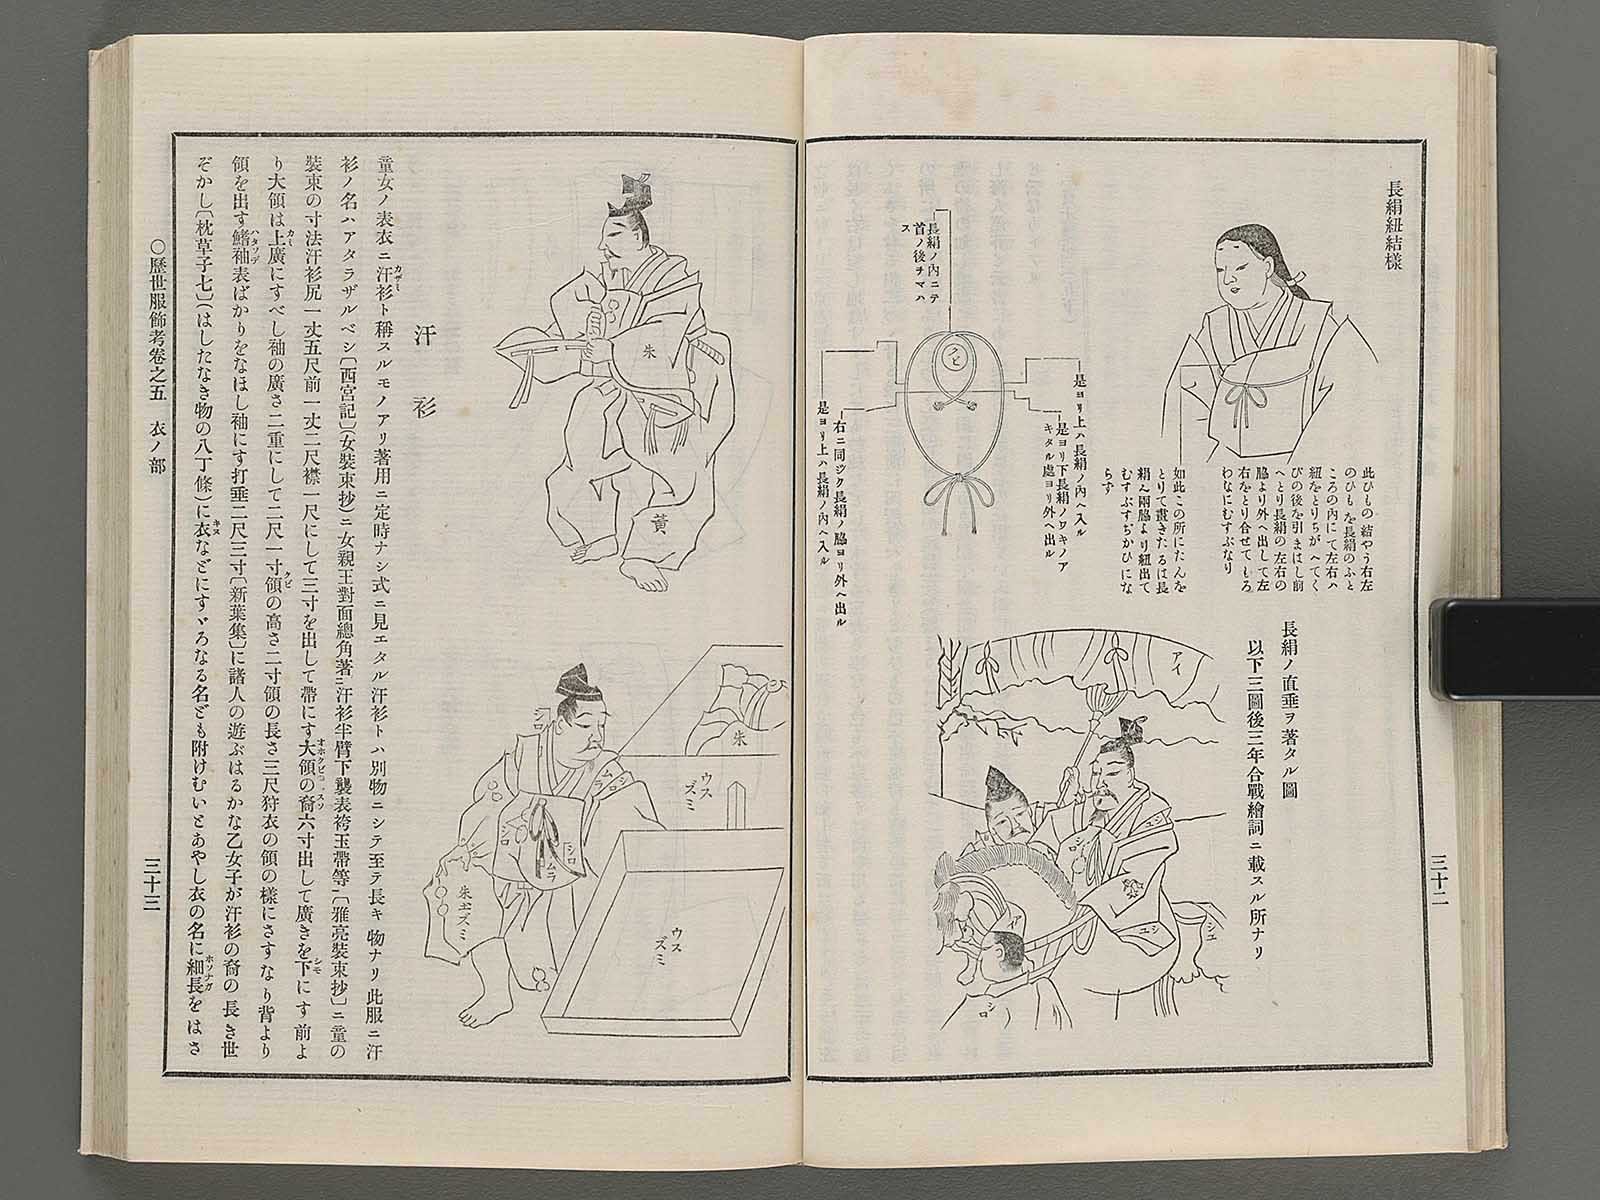 長絹紐結樣
此ひもの結やう右左
のひもを長絹のふと
ころの內にて左右ハ
紐をとりちがへてく
びの後を引まはし前
へとり長絹の左右の
脇より外へ出して左
右をとり合せてもろ
わなにむすぶなり
如此この所にたんを
とりて畫きたるは長
絹へ兩脇より紐出て
むすぶすぢかひにな
らず
是ヨリ上ハ長絹ノ內ヘ入ル
是ヨリ下長絹ノワキノア
キタル處ヨリ外ヘ出ル
長絹ノ內ニテ
首ノ後チマハ
ス
クビ
右ニ同ジク長絹ノ脇ヨリ外ヘ出ル
是ヨリ上ハ長絹ノ內ヘ入ル
長絹ノ直垂ヲ著タル圖
以下三圖後三年合戰繪詞ニ載スル所ナリ
アイ
シユ
シユ
アイ
シロ
三十二
朱
黃
シロ
シロ
ムラ
シロ
シロ
ムラ
朱
ウス
ズミ
ウス
ズミ
朱ズミ
汗衫
童女ノ表衣ニ汗衫ト稱スルモノアリ著用ニ定時ナシ式ニ見エタル汗衫トハ別物ニシテ至テ長キ物ナリ此服ニ汗
カザミ
衫ノ名ハアタラザルベシ〔西宮記〕(女裝束抄)ニ女親王對面總角著ニ汗衫半臂下襲表袴玉帶等ニ〔雅亮裝束抄〕ニ童の
裝束の寸法汗衫尻一丈五尺前一丈二尺襟一尺にして三寸を出して帶にす大領の裔六寸出して廣きを下にす前よ
オホクビ スソ シモ
り大領は上廣にすべし袖の廣さ二重にして二尺一寸領の高さ二寸領の長さ三尺狩衣の領の樣にさすなり背より
カミ クビ
領を出す鰭袖表ばかりをなほし袖にす打垂二尺三寸〔新葉集〕に諸人の遊ぶはるかな乙女子が汗衫の裔の長き世
ハタソデ
ぞかし〔枕草子七〕(はしたなき物の八丁條)に衣などにすゞろなる名ども附けむいとあやし衣の名に細長をはさ
キヌ ホソナガ
○歷世服飾考卷之五 衣ノ部
三十三